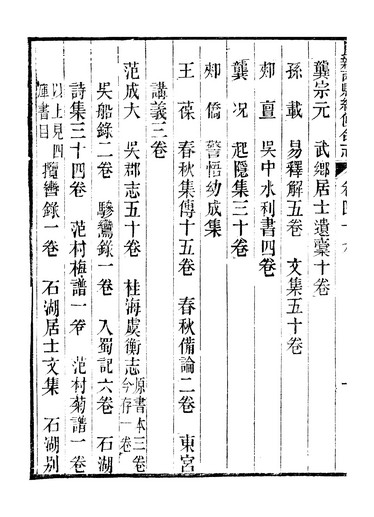 新兩縣續修合志 卷四十
龔宗元 武鄉居士遺稾十卷
孫載 易釋解五卷 文集五十卷
郟亶 吳中水利書四卷
龔況 起隱集三十卷
郟僑 警悟幼成集
王葆 春秋集傳十五卷 春秋備論二卷 東宮
講義三卷
范成大 吳郡志五十卷 桂海虞衡志 原書本三卷今存一卷
吳船錄二卷 驂鸞錄一卷 入蜀記六卷 石湖
詩集三十四卷 范村梅譜一卷 范村菊譜一卷
以上見四庫書目 攬轡錄一卷 石湖居士文集 石湖别